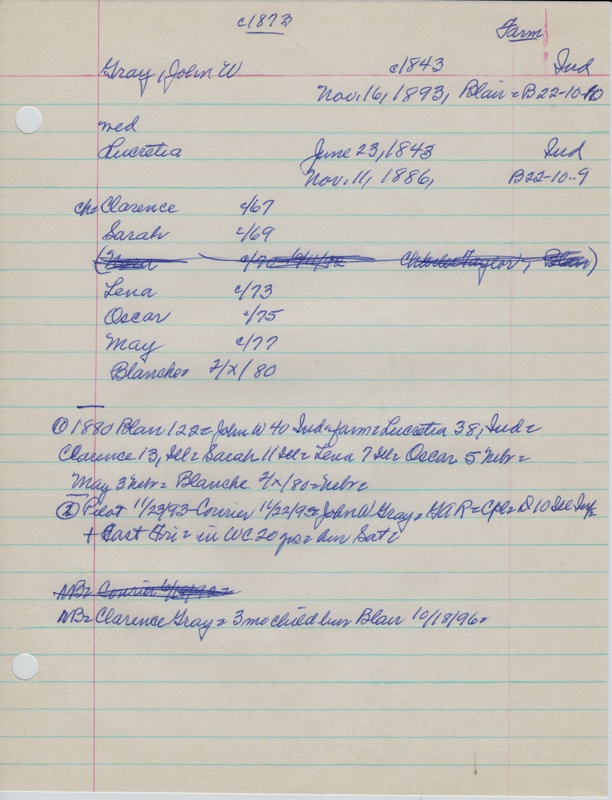 c1873
Farm
Gray, John W c1843 Ind
Nov. 16, 1893, Blair = B22-10-10
med
Lucretia June 23, 1843 Ind
Nov. 11, 1886, B22-10-9
ch= Clarence c/67
Sarah c/69
(Nora c/70 Charles Taylor, Blair)
Lena c/73
Oscar c/75
May c/77
Blanche= 2/x/80
① 1880 Blair 122= John W 40 Ind=farm= Lucretia 38, Ind=
Clarence 13, Ill= Sarah 11 Ill= Lena 7 Ill= Oscar 5 Nebr=
May 3 Nebr= Blanche 2/x/80=Nebr=
② Pilot 11/23/93- Courier 11/22/93= John W Gray= GAR= Cpl= D 10 Ill Inf=
+ last Fri= in WC 20 yrs= bur Sat=
NB= Courier
NB= Clarence Gray= 3 mo child bur Blair 10/18/96=